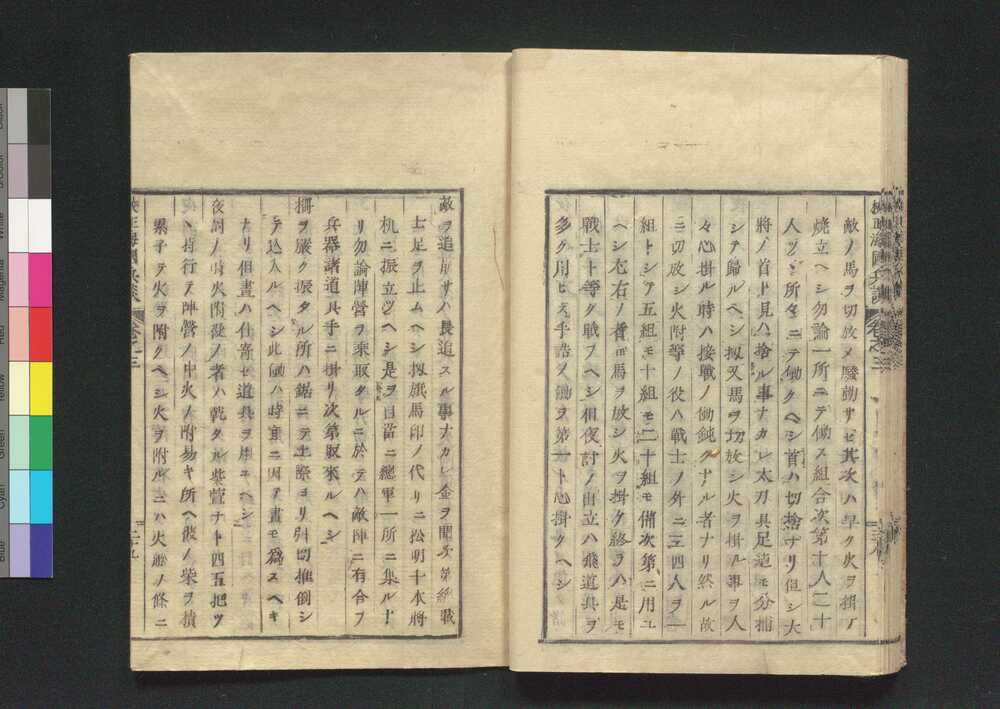 敵ノ馬ヲ切放メ騒動サセ其次ハ早ク火ヲ掛ケ
燒立ヘシ勿論一所ニテ働ス組合次第十人二十
人ツヽ所々ニテ働クヘシ首ハ切捨ナリ但シ大
將ノ首ト見ハ捨ル事ナカレ太刀具足迠モ分捕
シテ歸ルヘシ扨又馬ヲ切放シ火ヲ掛ル事ヲ人
々心掛ル時ハ接戰ノ働鈍クナル者ナリ然ル故
ニ切放シ火附等ノ役ハ戰士ノ外ニ三四人ヲ一
組トシテ五組モ十組モ二十組モ備次第ニ用ユ
ヘシ右ノ者𪜈馬ヲ放シ火ヲ掛ケ終ラハ是モ
戰士ト等ク戰フヘシ相夜討ノ出立ハ飛道具ヲ
多ク用ヒス手詰ノ働ヲ第一ト心掛クヘシ
敵ヲ追崩サハ長追スル事ナカレ金ヲ聞次第納戰
士足ヲ止ムヘシ扨旗馬印ノ代リニ松明十本將
机ニ振立ツヘシ是ヲ目當ニ總軍一所ニ集ル
リ勿論陣營ヲ乘取タルニ於テハ敵陣ニ有合フ
兵器諸道具手ニ掛リ次第取來ルヘシ
柵ヲ嚴ク振タル所ハ鋸ニテ土際ヨリ引切推倒シ
テ込入ルヘシ此働ハ時宜ニ因テ晝モ爲スヘキ
ナリ但晝ハ仕寄セ道具ヲ用ユヘシ
夜討ノ時火附役ノ者ハ乾タル柴萱ナト四五把ツ
ヽ持行テ陣營ノ中火ノ附易キ所ヘ彼ノ柴ヲ積
累子テ火ヲ附クヘシ火ヲ附ルニハ火船ノ條ニ